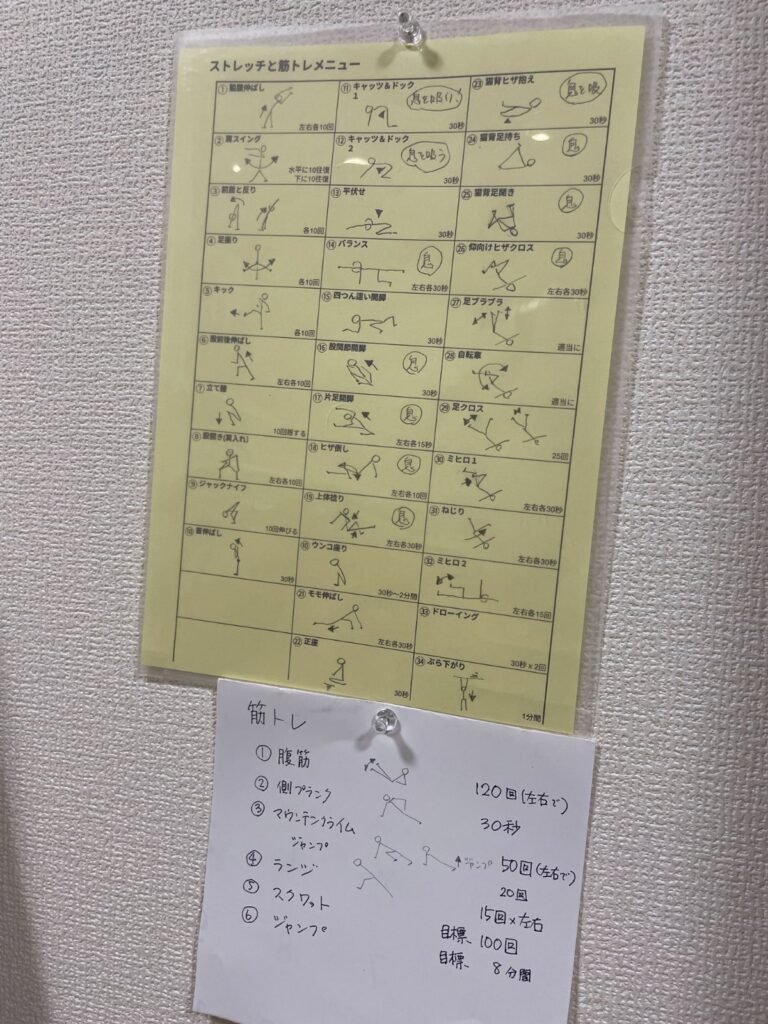 ストレッチと筋トレメニュー
① 脇腹伸ばし
左右各10回
② 肩スイング
水平に10往復
下に10往復
③ 前屈と反り
各10回
④ 足振り
各10回
⑤ キック
各10回
⑥ 股前後伸ばし
左右各10回
⑦ 立て膝
10回
⑧ 股開き(肩入れ)
左右各10回
⑨ ジャックナイフ
10回伸びる
⑩ 首伸ばし
30秒
⑪ キャッツ&ドック
1
息を吸い
30秒
⑫ キャッツ&ドック
2
息を吸う
30秒
⑬ 平伏せ
30秒
⑭ バランス
息
左右各30秒
⑮ 四つん這い開脚
30秒
⑯ 股関節開脚
息
30秒
⑰ 片足開脚
息
左右各15秒
⑱ ヒザ倒し
息
左右各10回
⑲ 上体捻り
息
左右各30秒
ウンコ座り
30秒~2分間
㉑ モモ伸ばし
左右各30秒
㉒ 正座
30秒
㉓ 猫背ヒザ抱え
息を吸
30秒
㉔ 猫背足持ち
息
30秒
㉕ 猫背足開き
息
30秒
㉖ 仰向けヒザクロス
息
左右各30秒
㉗ 足ブラブラ
適当に
㉘ 自転車
適当に
㉙ 足クロス
25回
㉚ ミヒロ1
左右各30秒
㉛ ねじり
左右各30秒
㉜ ミヒロ2
左右各15回
㉝ ドローイング
30秒 x 2回
㉞ ぶら下がり
1分間
筋トレ
① 腹筋
120回(左右で)
② 側プランク
30秒
③ マウンテンクライム
50回(左右で)
ジャンプ
ジャンプ
20回
④ ランジ
15回×左右
⑤ スクワット
目標 100回
⑥ ジャンプ
目標 8分間